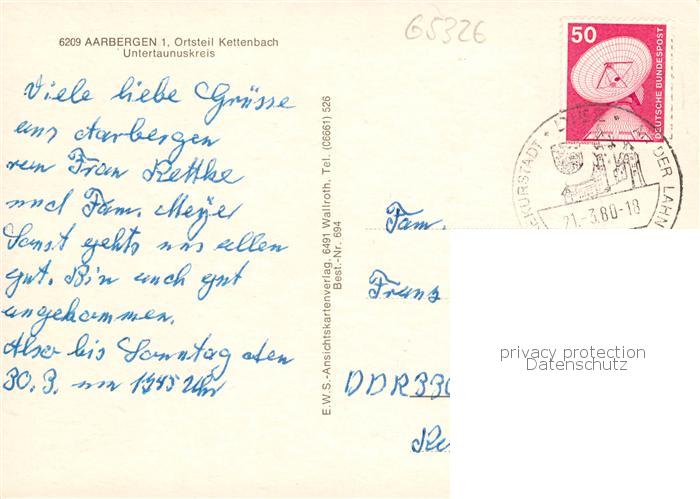 65326
6209 AARBERGEN 1, Ortsteil Kettenbach
Untertaunuskreis
50
DEUTSCHE BUNDESPOST
KURSTADT · DER LAHN
21.-3.80-18
Viele liebe Grüsse
aus Aarbergen
von Frau Kettke
und Fam. Meyer
Sonst gehts uns allen
gut. Bin auch gut
angekommen.
Also bis Sonntag den
30.3. um 1345 Uhr
E.W.S.-Ansichtskartenverlag, 6491 Wallroth, Tel. (06661) 526
Best.-Nr. 694
Fam.
Franz
DDR 330
privacy protection
Datenschutz